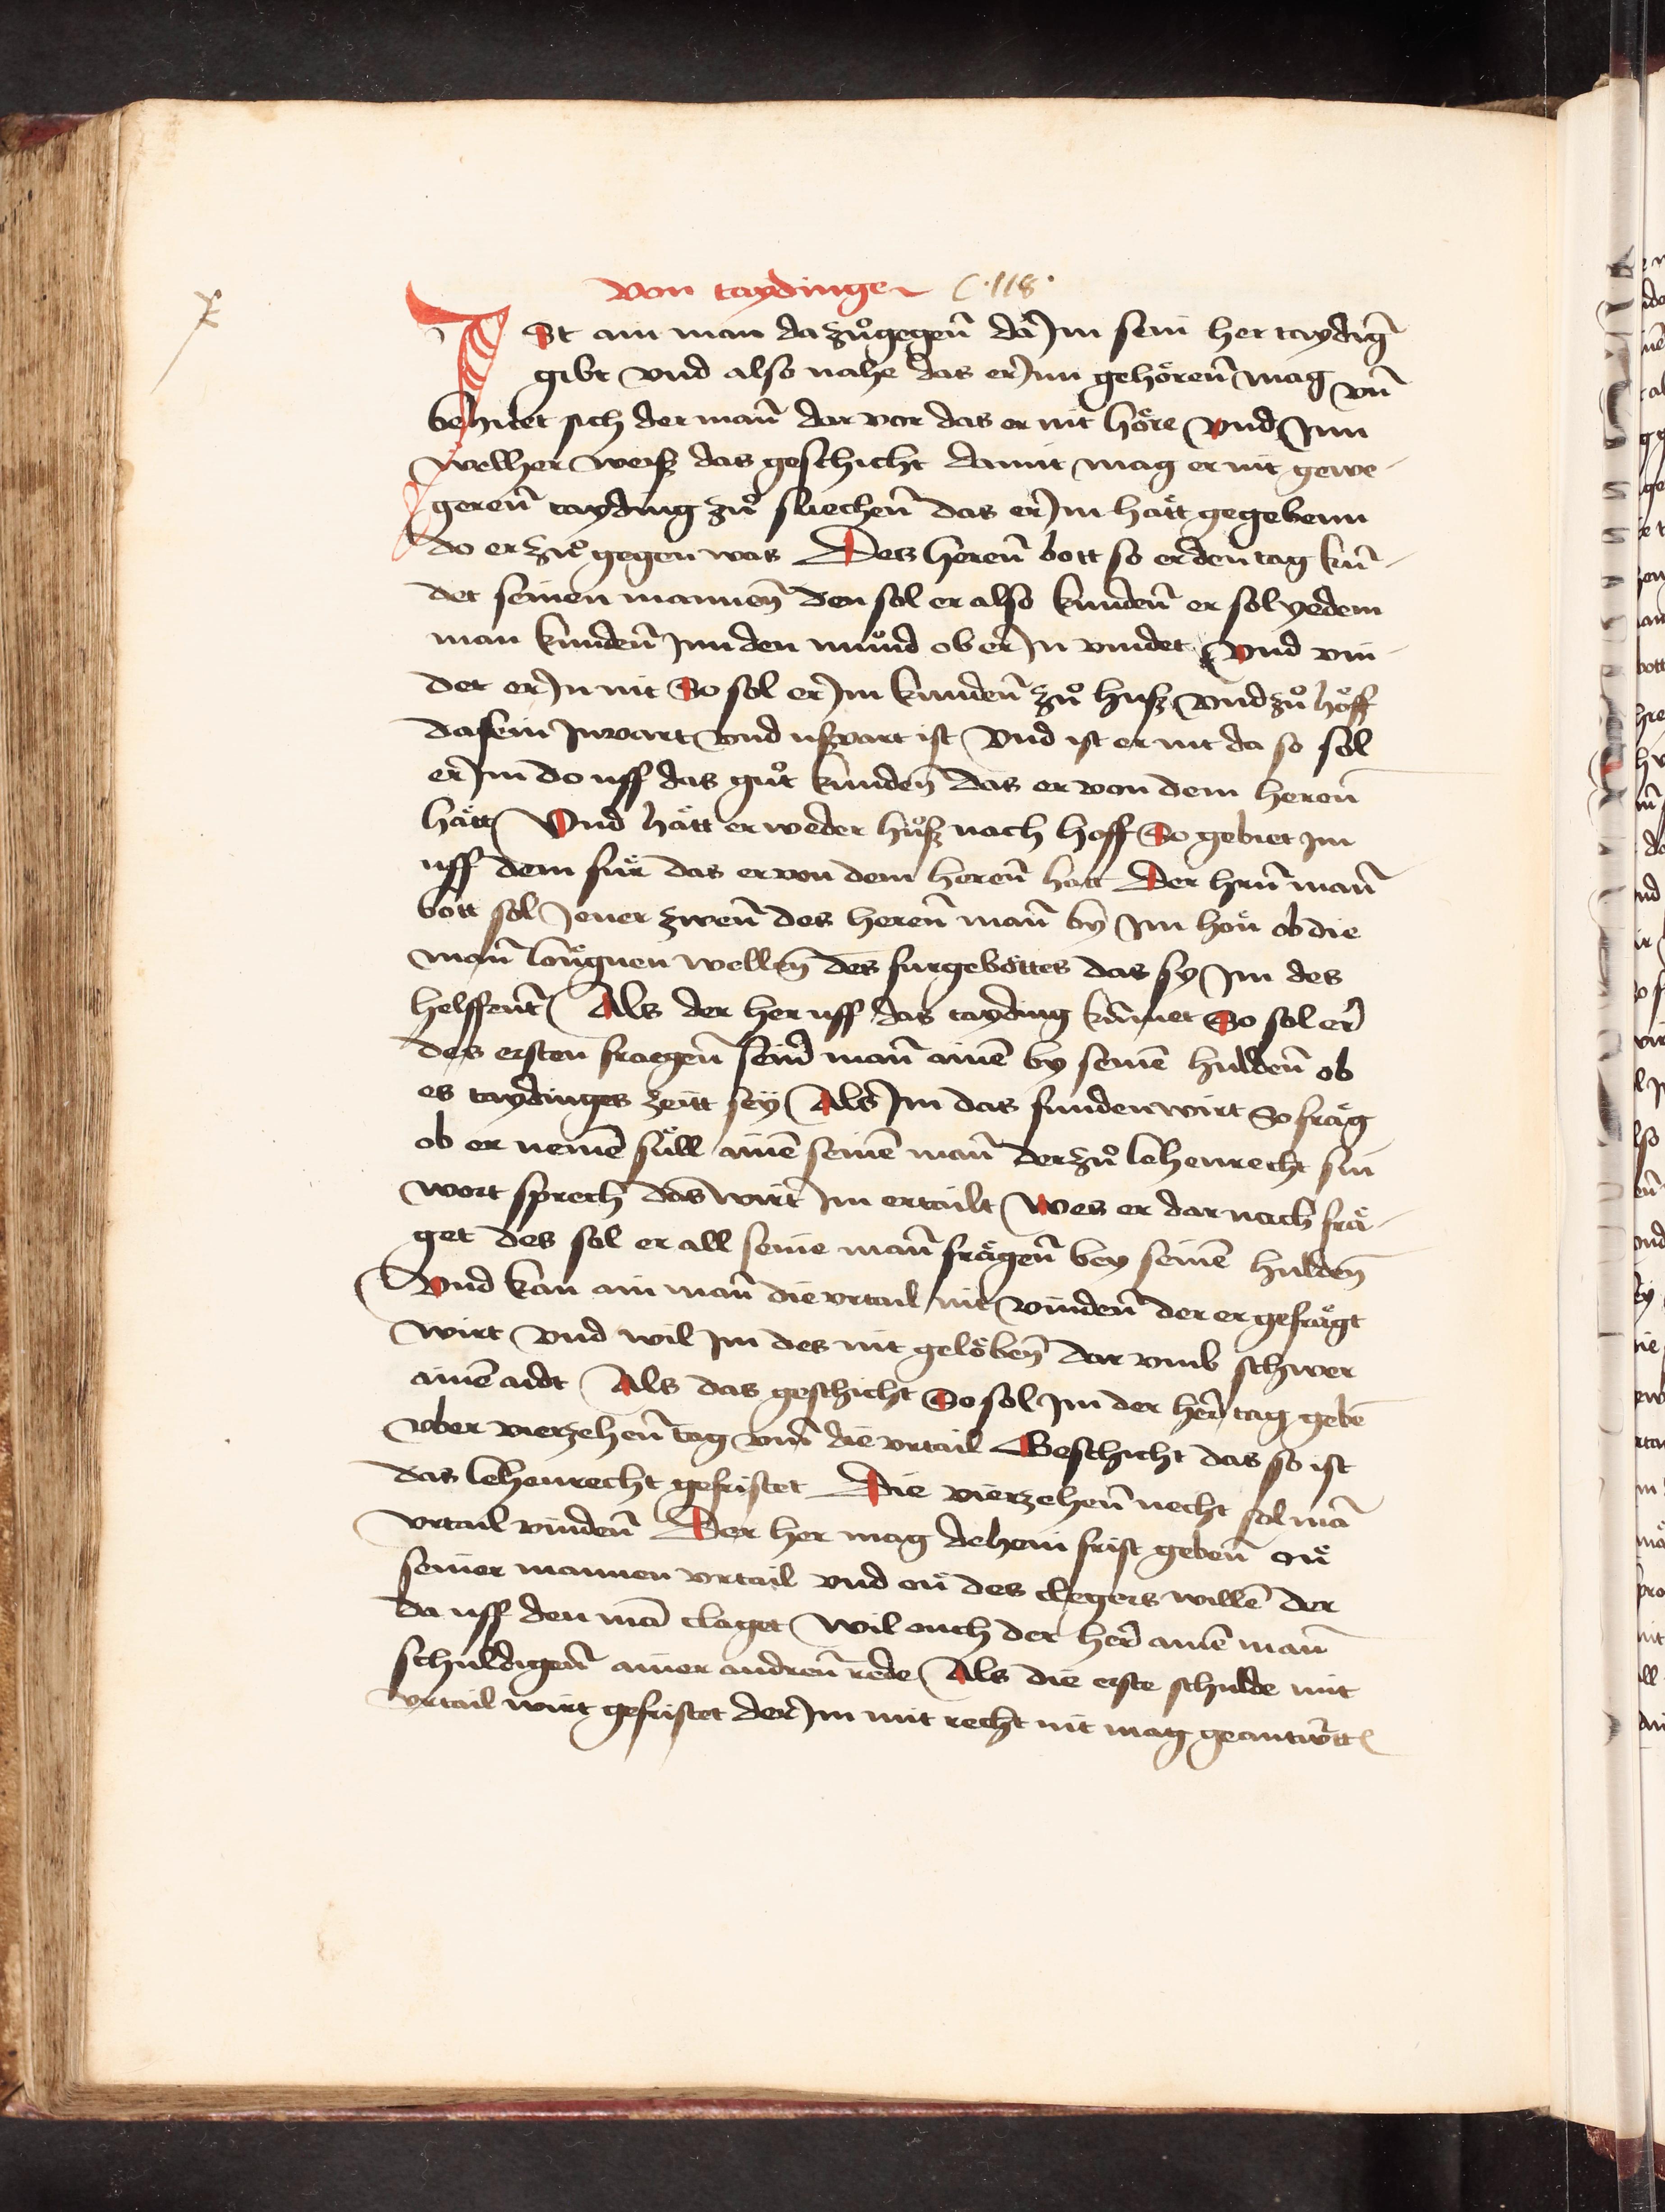 Von taydingen C.118.
ISt ain man da zůgegen̄ da Im sein her taydinḡ
gibt vnd also nahe das er Inn gehören̄ mag vn̄
behütet sich der man̄ dar vor das er nit höre vnd Inn
welher weisz das geschicht damit mag er nit gewe-
geren̄ tayding zů sliechen̄ das er Im hätt gegebenn
do er zů gegen was Des heren̄ bott so er den tag kün̄-
det seinen mannen̄ den sol er also kunden̄ er sol yedem
man kunden̄ Inn den mund ob er In vindet Vnd vin-
det er In nit So sol er Im kunden̄ zů husz vnd zů höff
da sein Inwart vnd uszwart ist Vnd ist er nit da so sol
er Im do uff das gůt kunden̄ das er von dem heren̄
hätt Vnd hätt er weder hůsz nach hoff So gebiet Im
uff dem für das er von dem heren̄ hatt Der hrn̄ man̄
bott sol Iener zwen̄ des heren̄ man̄ by Im hon̄ ob die
man̄ löugnen wellen̄ des furgebottes das sy Im des
helffent Als der her uff das tayding kumet So sol er
des ersten fraegen̄ seind man̄ ainē by seinē hulden̄ ob
es taydinges zeitt sey Als Im das funden wirt So fräg
ob er nemē süll ainē seinē man̄ der zů lehenrecht sin
wort sprech das wirt Im ertailt Wes er dar nach frä-
get des sol er all seine man̄ frägen̄ bey seinē hulden̄
Vnd kan ain man̄ die vrtail nit vinden̄ der er gefrägt
wirt vnd wil Im des nit gelöben̄ dar vmb schwer
ainē aidt Als das geschicht So sol Im der her tag gebē
vber vierzehen̄ tag vm̄ die vrtail Geschicht das so ist
das lehenrecht gefristet Die vierzehen̄ necht sol mā
vrtail vinden̄ Der her mag dehein frist geben̄ on̄
seiner mannen vrtail vnd on̄ des clegers willē der
da uff den mā claget Wil ouch der her ainē man̄
schuldigen̄ ainer andren̄ rede Als die erste schulde mit
vrtail wirt gefristet der Im mit recht nit mag geantwrtt